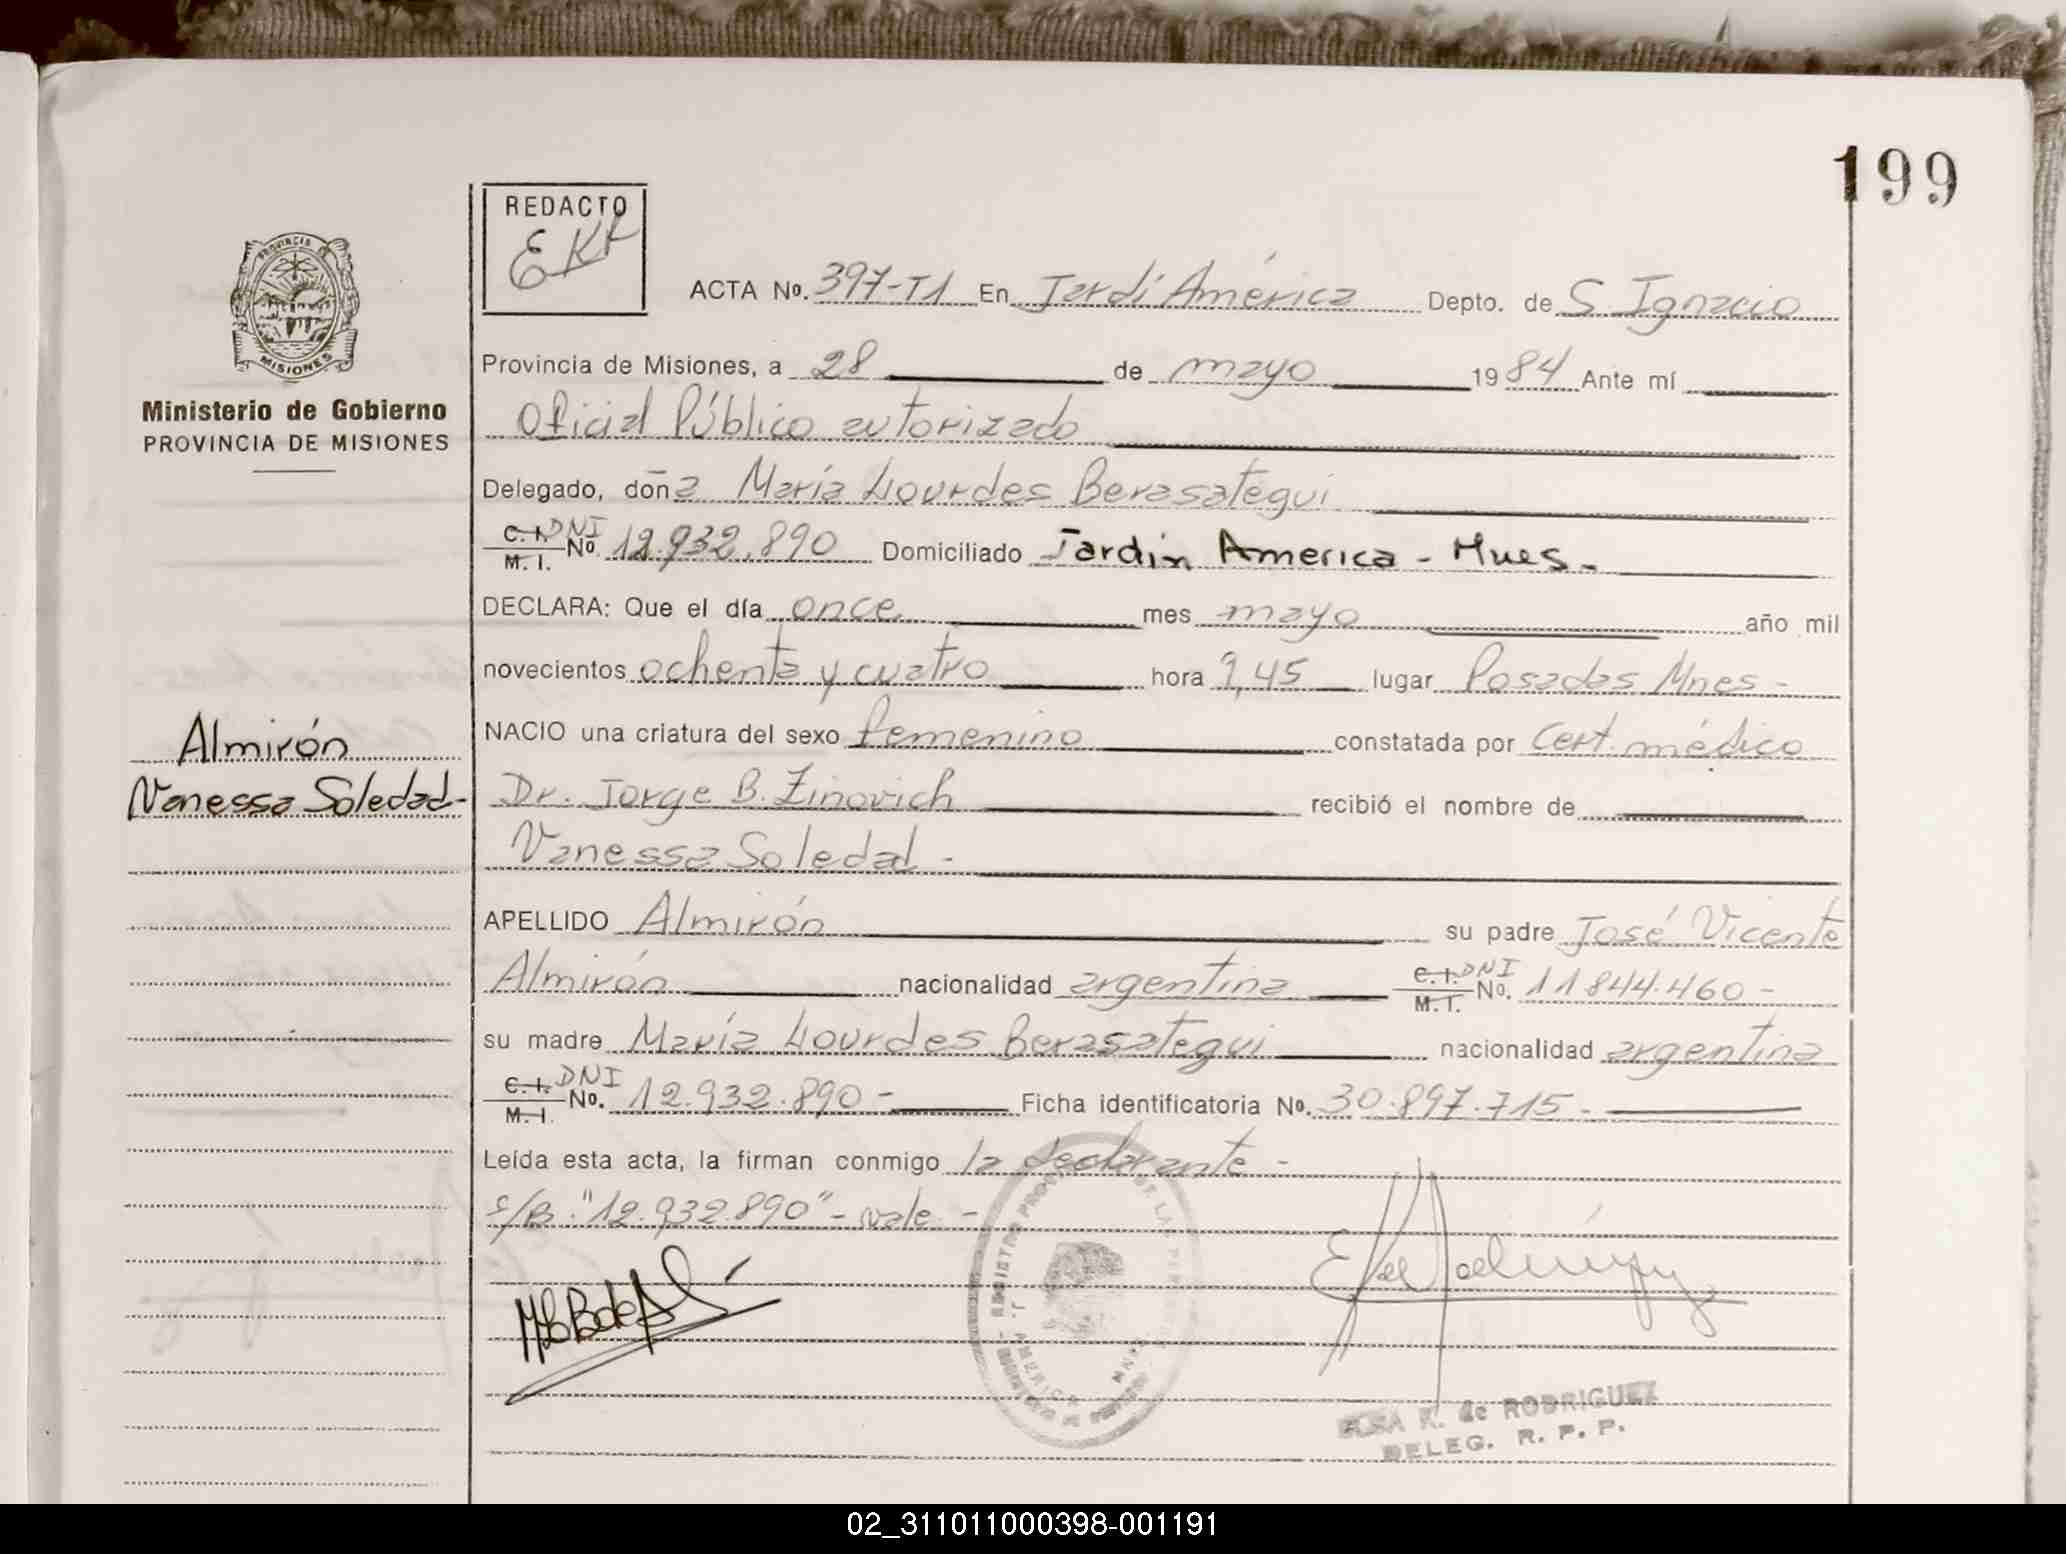 199
REDACTO
EKr
PROVINCIA DE
MISIONES
Ministerio de Gobierno
PROVINCIA DE MISIONES
ACTA No. 397-T1 En Jardí América Depto. de S Ignacio
Provincia de Misiones, a 28 de mayo 1984 Ante mí
Oficial Público autorizado
Delegado, doña María Lourdes Berasategui
C.I. DNI M.I. No 12.932.890 Domiciliado Jardin America - Mnes.
DECLARA: Que el día once mes mayo año mil
novecientos ochenta y cuatro hora 9,45 lugar Posadas Mnes -
NACIO una criatura del sexo femenino constatada por Cert. médico
Dr. Jorge B. Zinovich recibió el nombre de
Vanessa Soledad -
APELLIDO Almirón su padre José Vicente
Almirón nacionalidad argentina C.I. DNI M.I. No. 11.844.460 -
su madre María Lourdes Berasategui nacionalidad argentina
C.I. DNI M.I. No. 12.932.890 - Ficha identificatoria No. 30.897.715 -
Leída esta acta, la firman conmigo la declarante -
s/B "12.932.890" - vale -
Almirón
Vanessa Soledad -
ELSA K. de RODRIGUEZ
DELEG. R. P. P.
02_311011000398-001191